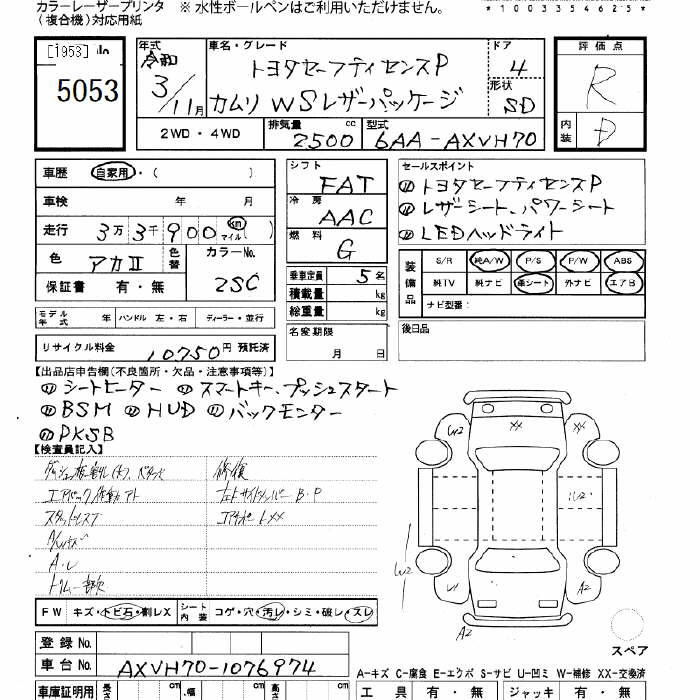 カラーレーザープリンタ ※ 水性ボールペンはご利用いただけません。
(複合機)対応用紙
*100354625*
[1953]
5053
年式 令和 3/11月
車名・グレード トヨタセーフティセンスP
カムリ WSレザーパッケージ
ドア 4
形状 SD
評価点 R
内装 D
2WD・4WD
排気量 2500 cc
型式 6AA-AXVH70
車歴 自家用・( )
車検 年 月
走行 3万3千900 km マイル ( )
色 アカII 色替
カラーNo. 2SC
保証書 有・無
モデル年式 年 ハンドル 左・右 ディーラー・並行
リサイクル料金 10750円 預託済
シフト FAT
冷房 AAC
燃料 G
乗車定員 5名
積載量 kg
総重量 kg
名変期限 月 日
セールスポイント
トヨタセーフティセンスP
レザーシート、パワーシート
LEDヘッドライト
装備品 S/R 純A/W P/S P/W ABS
純TV 純ナビ 革シート 外ナビ エアB
ナビ型番:
後日品
【出品店申告欄(不良箇所・欠品・注意事項等)】
シートヒーター スマートキー、プッシュスタート
BSM HUD バックモニター
PKSB
【検査員記入】
修復
A・L
FW キズ・トビ石・割レX シート内装 コゲ・穴・汚レ・シミ・破レ・スレ
W2 XX XX
W2
W2
W1 A2
A2
スペア
登録 No.
車台 No. AXVH70-1076974
A-キズ C-腐食 E-エクボ S-サビ U-凹ミ W-補修 XX-交換済
車庫証明用 長さ cm 幅 cm 高さ cm
工具 有・無 ジャッキ 有・無